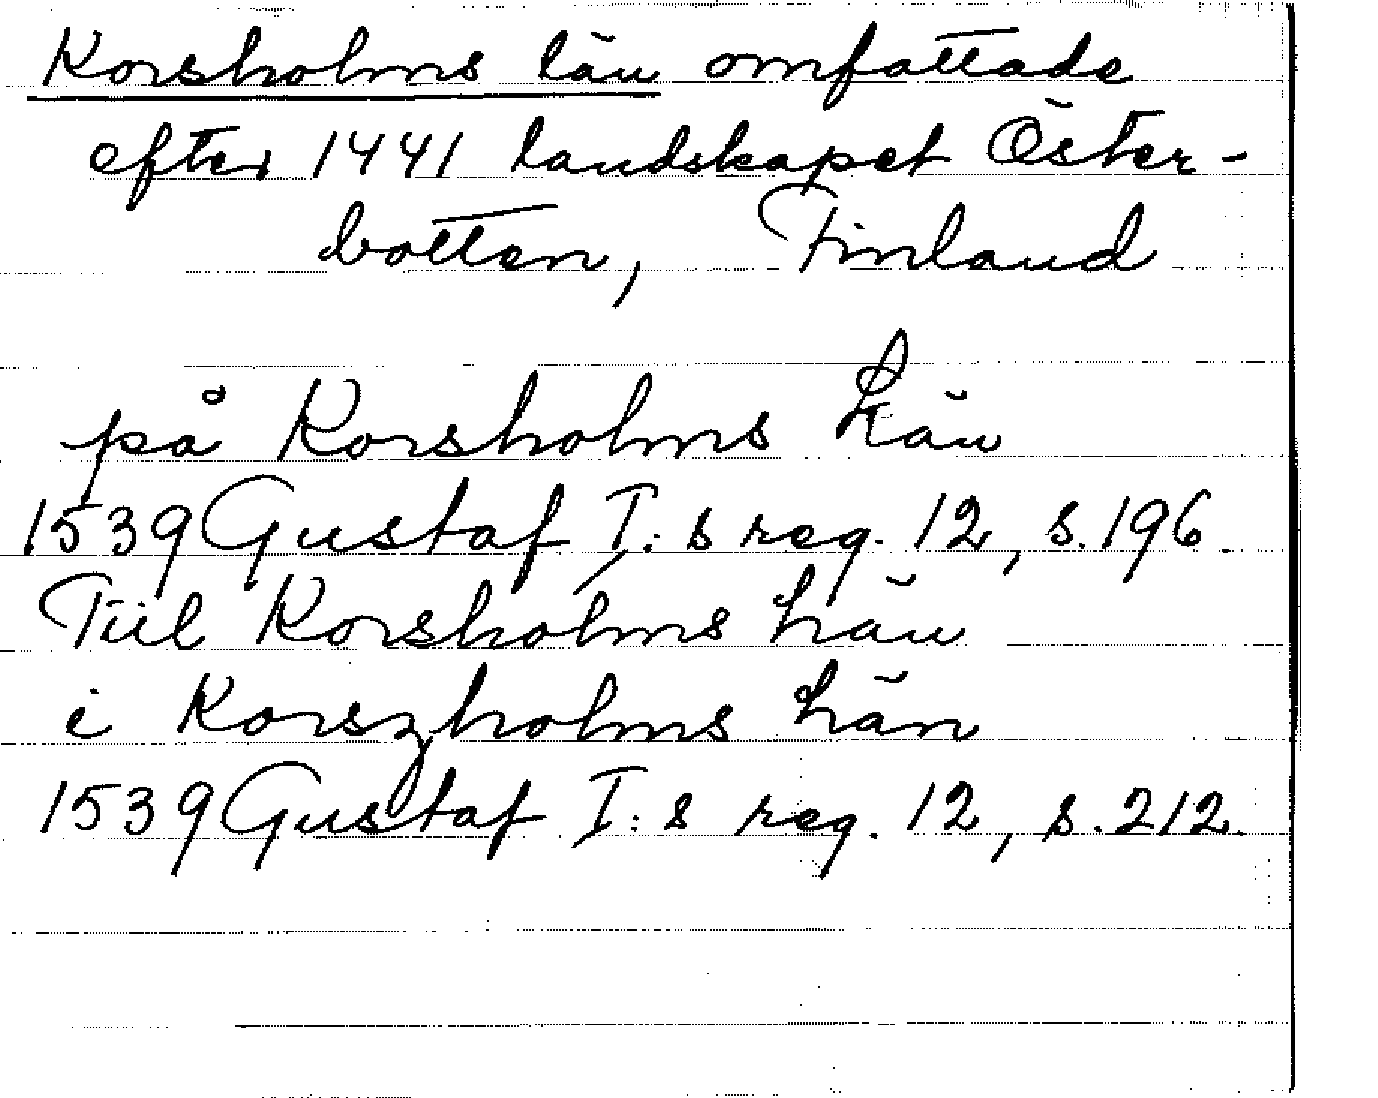 Korsholms län omfattade
efter 1441 landskapet Öster-
botten, Finland
på Korsholms Län
1539 Gustaf I:s reg. 12, s. 196.
Tiil Korsholms Län
i Korszholms Län
1539 Gustaf I:s reg. 12, s. 212.